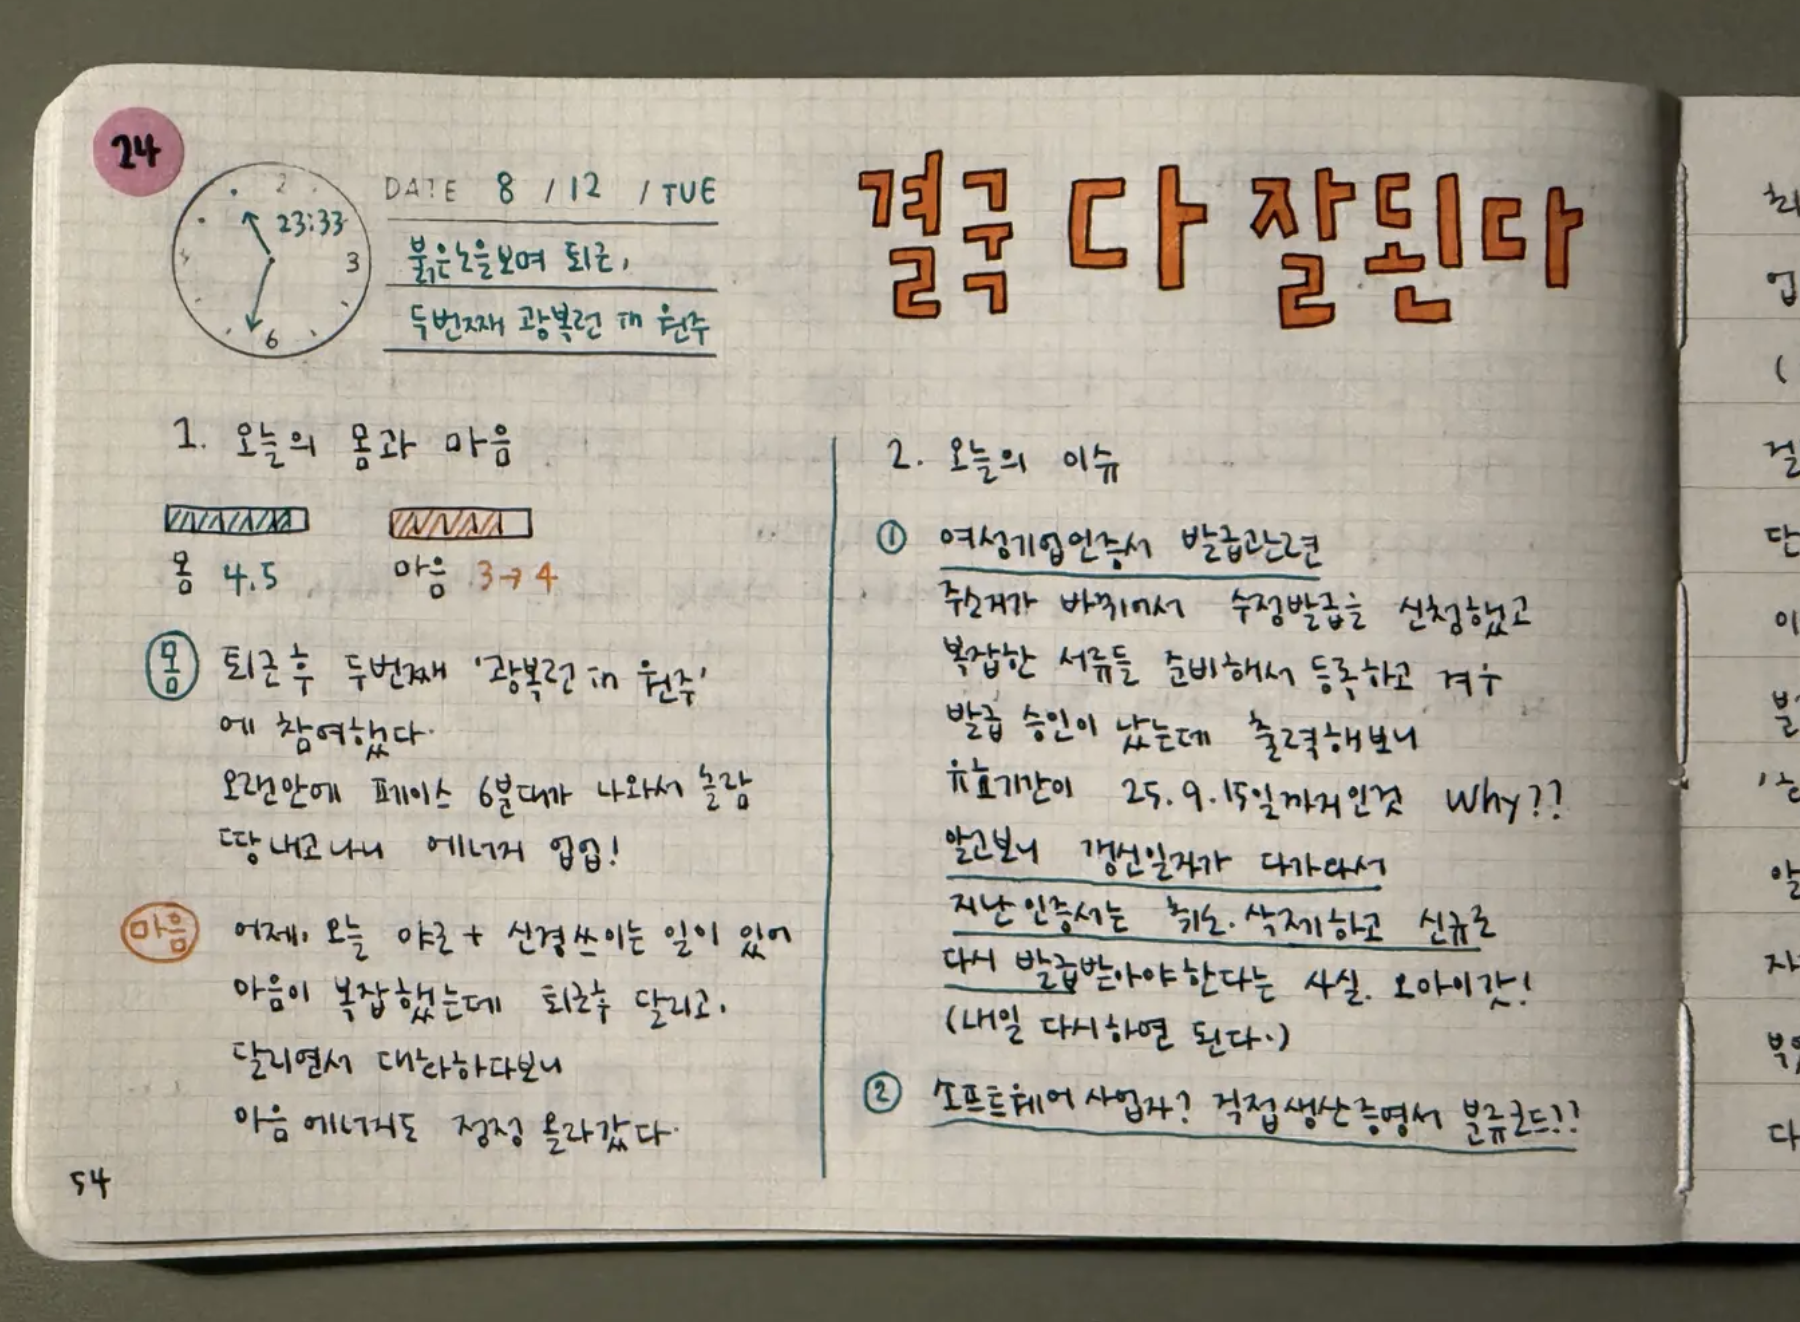 24
2
3
6
23:33
DATE 8 / 12 / TUE
붉은노을보며 퇴근,
두번째 광복런 in 원주
결국 다 잘된다
1. 오늘의 몸과 마음
몸 4.5
마음 3→4
몸
퇴근후 두번째 '광복런 in 원주'
에 참여했다.
오랜만에 페이스 6분대가 나와서 놀람
땀내고나니 에너지 업업!
마음
어제, 오늘 야근 + 신경쓰이는 일이 있어
마음이 복잡했는데 퇴근후 달리고,
달리면서 대화하다보니
마음에너지도 점점 올라갔다.
54
2. 오늘의 이슈
① 여성기업인증서 발급관련
주소지가 바뀌어서 수정발급을 신청했고
복잡한 서류들 준비해서 등록하고 겨우
발급 승인이 났는데 출력해보니
유효기간이 25.9.15일까지인것 Why??
알고보니 갱신일자가 다가와서
지난인증서는 취소.삭제하고 신규로
다시 발급받아야한다는 사실. 오마이갓!
(내일 다시하면 된다.)
② 소프트웨어사업자? 직접생산증명서 분류코드??
업
(
걸
단
이
알
자
다